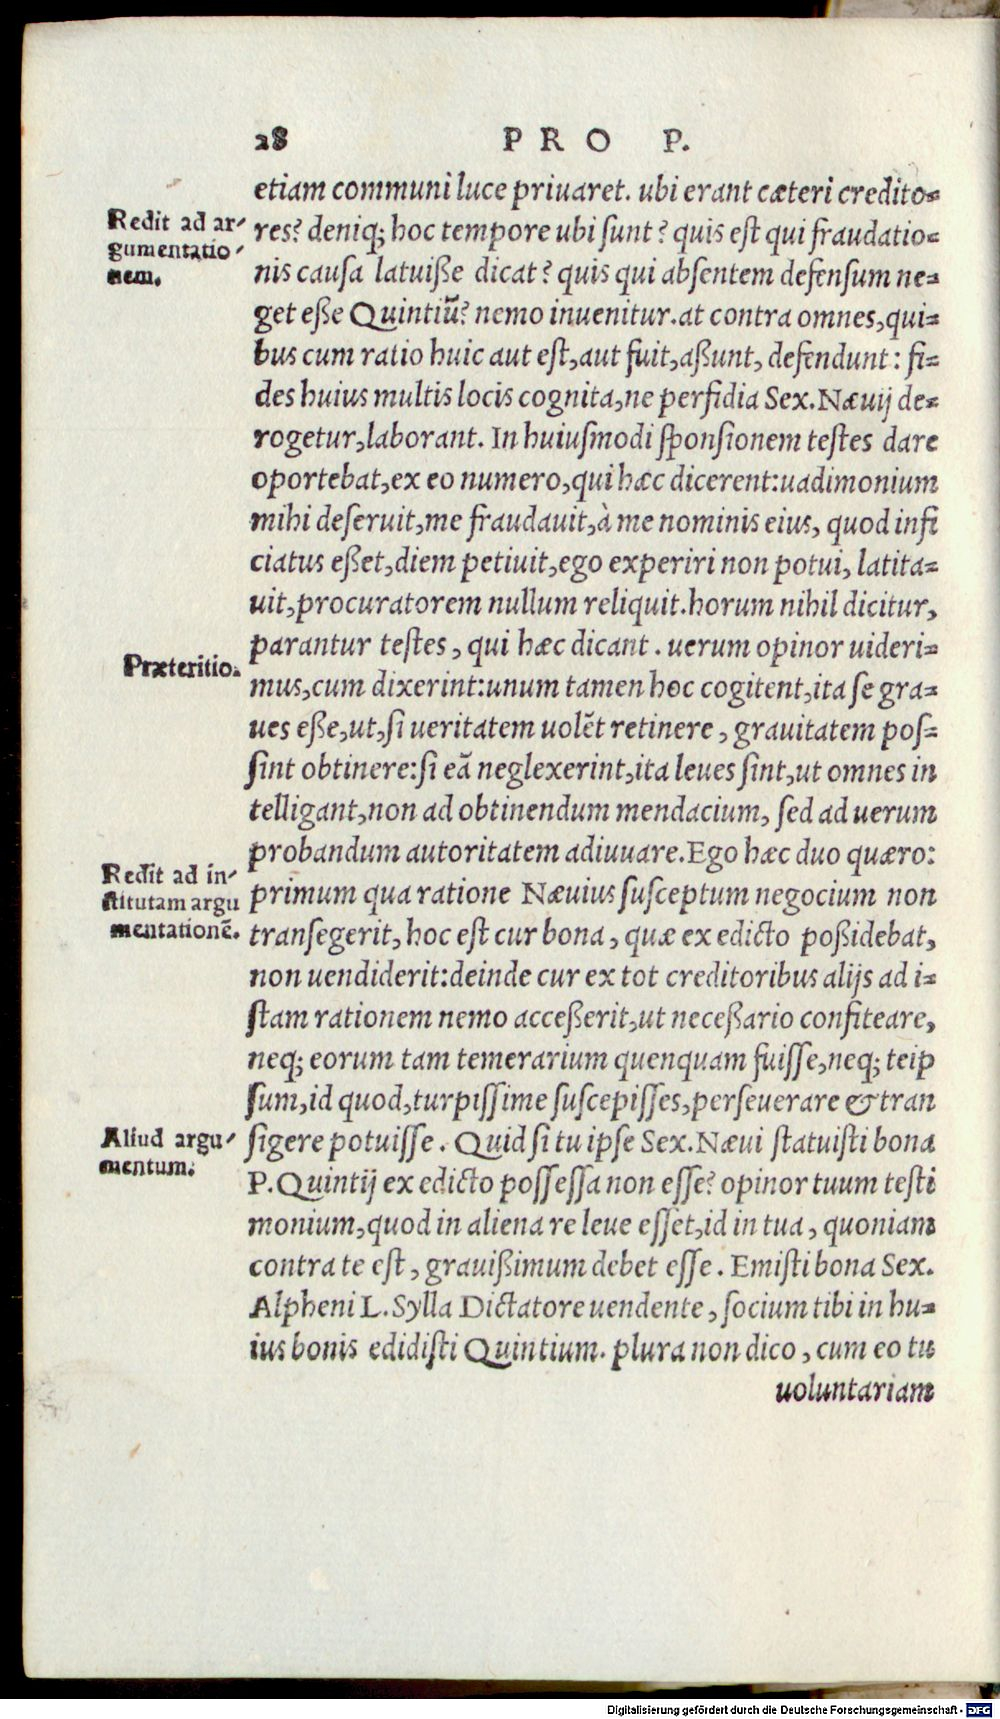 28 PRO P.
etiam communi luce priuaret. ubi erant cæteri credito=
Redit ad ar-
gumentatio-
nem.
res? deniq; hoc tempore ubi sunt? quis est qui fraudatio=
nis causa latuiße dicat? quis qui absentem defensum ne=
get eße Quintiū? nemo inuenitur.at contra omnes,qui=
bus cum ratio huic aut est,aut fuit,aßunt, defendunt: fi=
des huius multis locis cognita,ne perfidia Sex.Næuij de=
rogetur,laborant. In huiusmodi sponsionem testes dare
oportebat,ex eo numero,qui hæc dicerent:uadimonium
mihi deseruit,me fraudauit,à me nominis eius, quod infi
ciatus eßet,diem petiuit,ego experiri non potui, latita=
uit,procuratorem nullum reliquit.horum nihil dicitur,
parantur testes, qui hæc dicant. uerum opinor uideri=
Præteritio.
mus,cum dixerint:unum tamen hoc cogitent,ita se gra=
ues eße,ut,si ueritatem uolēt retinere, grauitatem pos=
sint obtinere:si eā neglexerint,ita leues sint,ut omnes in
telligant,non ad obtinendum mendacium, sed ad uerum
probandum autoritatem adiuuare.Ego hæc duo quæro:
Redit ad in-
stitutam argu
mentationē.
primum qua ratione Næuius susceptum negocium non
transegerit, hoc est cur bona, quæ ex edicto poßidebat,
non uendiderit:deinde cur ex tot creditoribus alijs ad i=
stam rationem nemo acceßerit,ut neceßario confiteare,
neq; eorum tam temerarium quenquam fuisse,neq; teip
sum,id quod,turpissime suscepisses,perseuerare & tran
Aliud argu-
mentum.
sigere potuisse. Quid si tu ipse Sex.Næui statuisti bona
P.Quintij ex edicto possessa non esse? opinor tuum testi
monium,quod in aliena re leue esset,id in tua, quoniam
contra te est, grauißimum debet esse. Emisti bona Sex.
Alpheni L.Sylla Dictatore uendente, socium tibi in hu=
ius bonis edidisti Quintium. plura non dico, cum eo tu
uoluntariam
Digitalisierung gefördert durch die Deutsche Forschungsgemeinschaft - DFG